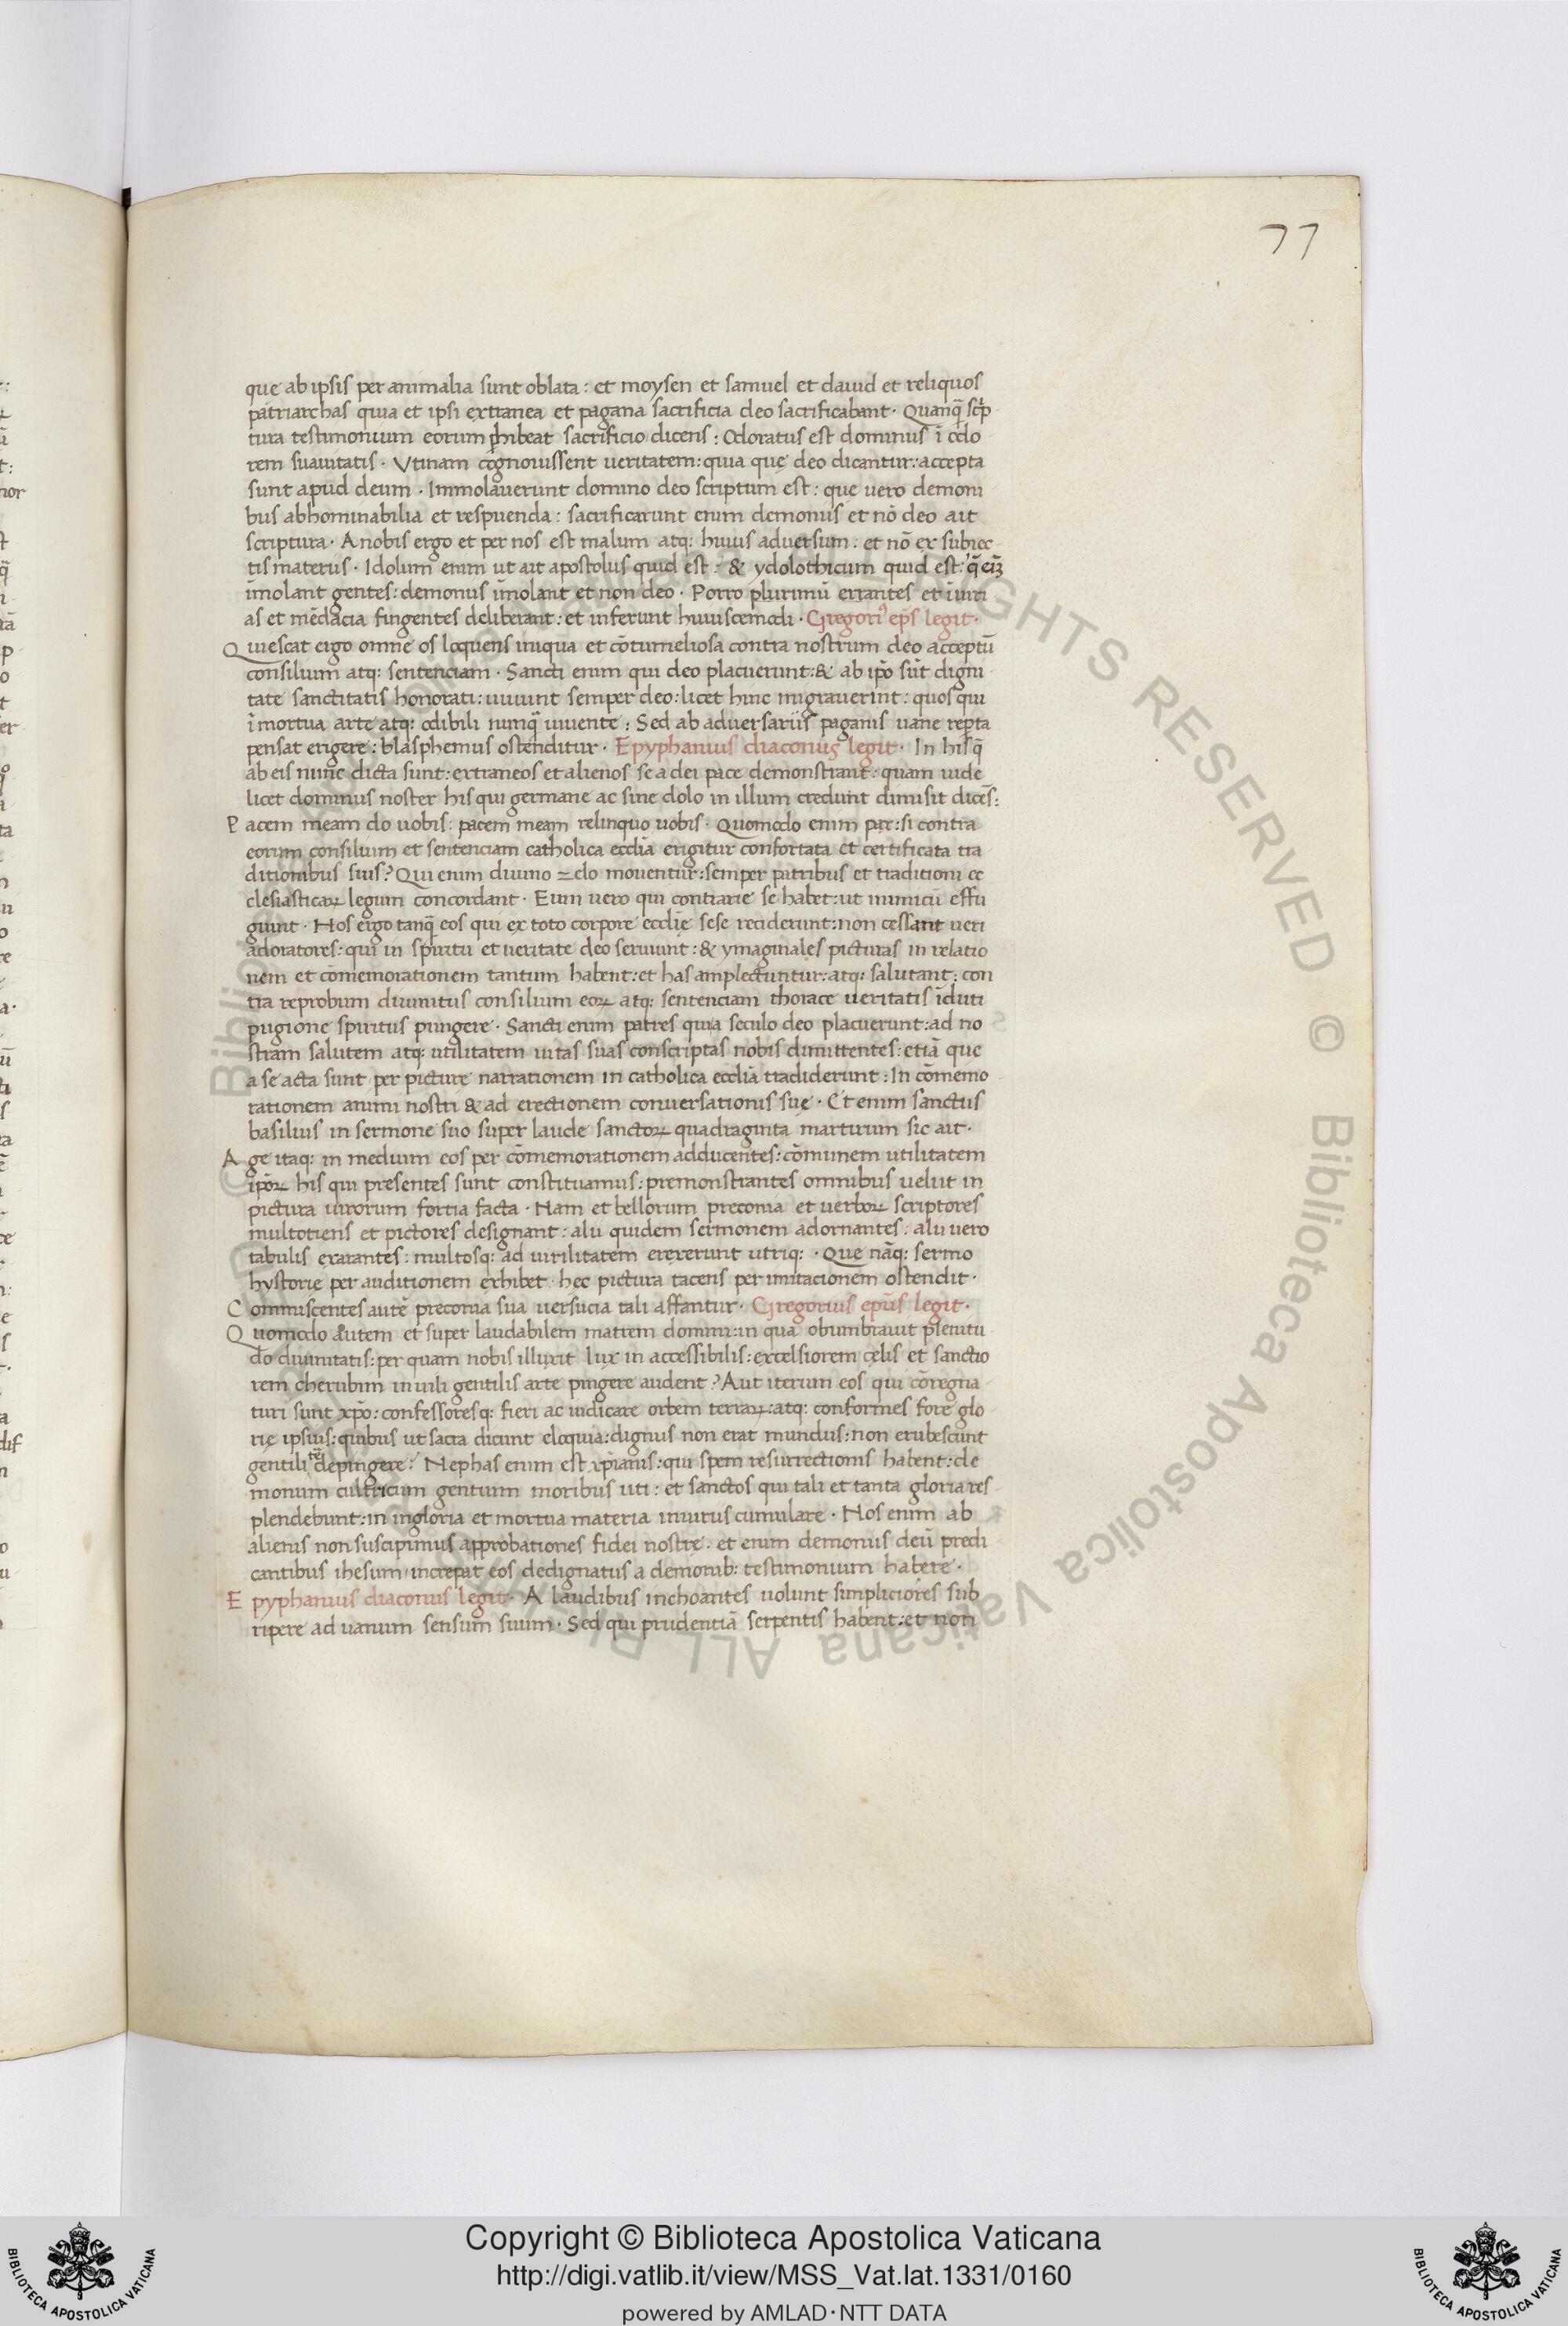 77
que ab ipsis per animalia sunt oblata: et moysen et samuel et dauid et reliquos
patriarchas quia et ipsi extranea et pagana sacrificia deo sacrificabant. Quanq̃ scrip
tura testimonium eorum phibeat sacrificio dicens: Odoratus est dominus ĩ odo
rem suauitatis. Vtinam cognouissent ueritatem: quia quę deo dicantur: accepta
sunt apud deum. Immolauerunt domino deo scriptum est: que uero demoni
bus abhominabilia et respuenda: sacrificarunt enim demoniis et nõ deo ait
scriptura. A nobis ergo et per nos est malum atq: huius aduersum: et nõ ex subiec
tis materiis. Idolum enim ut ait apostolus quid est: & ydolothicum quid est: q̃ eīʒ
īmolant gentes: demoniis īmolant et non deo. Porro plurimū errantes et īuiti
as et mẽdacia fingentes deliberant: et inferunt huiuscemodi. Gregori⁹ ep̃s legit.
Quiescat ergo omne os loquens iniqua et cõtumeliosa contra nostrum deo acceptū
consilium atq: sentenciam. Sancti enim qui deo placuerunt: & ab ip̃o sūt digni
tate sanctitatis honorati: uiuunt semper deo: licet hinc migrauerint: quos qui
ĩ mortua arte atq: odibili nunq̃ uiuente: Sed ab aduersariis paganis uane repta
pensat erigere: blasphemus ostenditur. Epyphanius diaconus legit. In his q̃
ab eis nunc dicta sunt: extraneos et alienos se a dei pace demonstrant: quam uide
licet dominus noster his qui germane ac sine dolo in illum credunt dimisit dicẽs:
Pacem meam do uobis: pacem meam relinquo uobis. Quomodo enim pax: si contra
eorum consilium et sentenciam catholica ecclīa erigitur confortata et certificata tra
ditionibus suis? Qui enim diuino zelo mouentur: semper patribus et traditioni ec
clesiasticaꝝ legum concordant. Eum uero qui contrarie se habet: ut inimicū effu
giunt. Nos ergo tanq̃ eos qui ex toto corpore ecclię sese reciderunt: non cessant ueri
adoratores: qui in spiritu et ueritate deo seruiunt: & ymaginales picturas in relatio
nem et cõmemorationem tantum habent: et has amplectuntur: atq: salutant: con
tra reprobum diuinitus consilium eoꝝ atq: sentenciam thorace ueritatis ĩduti
pugione spiritus pungere. Sancti enim patres quia seculo deo placuerunt: ad no
stram salutem atq: utilitatem uitas suas conscriptas nobis dimittentes: etiã que
a se acta sunt per picturę narrationem in catholica ecclīa tradiderunt: In cõmemo
rationem animi nostri & ad erectionem conuersationis suę. Et enim sanctus
basilius in sermone suo super laude sanctoꝝ quadraginta martirum sic ait.
Age itaq: in medium eos per cõmemorationem adducentes: cõmunem utilitatem
ip̃oꝝ his qui presentes sunt constituamus: premonstrantes omnibus uelut in
pictura uirorum fortia facta. Nam et bellorum preconia et uerboꝝ scriptores
multotiens et pictores designant: alii quidem sermonem adornantes: alii uero
tabulis exarantes: multosq: ad uirilitatem erexerunt utriq:. Que nãq: sermo
hystorie per auditionem exhibet. hec pictura tacens per imitacionem ostendit.
Commiscentes autẽ preconia sua uersucia tali affantur. Gregorius ep̃us legit.
Quomodo autem et super laudabilem matrem domini: in qua obumbrauit plenitu
do diuinitatis: per quam nobis illuxit lux in accessibilis: excelsiorem cęlis et sanctio
rem cherubim in uili gentilis arte pingere audent? Aut iterum eos qui cõregna
turi sunt xp̃o: confessoresq: fieri ac iudicare orbem terraꝝ: atq: conformes fore glo
rię ipsius: quibus ut sacra dicunt eloquia: dignus non erat mundus: non erubescunt
gentili arte depingere? Nephas enim est xp̃ianis: qui spem resurrectionis habent: de
monum cultricum gentium moribus uti: et sanctos qui tali et tanta gloria res
plendebunt: in ingloria et mortua materia inuitus cumulare. Nos enim ab
alienis non suscipimus approbationes fidei nostre. et enim demonius deū predi
cantibus ihesum increpat eos dedignatus a demonib: testimonium habere.
Epyphanius diaconus legit. A laudibus inchoantes uolunt simpliciores sub
ripere ad uanum sensum suum. Sed qui prudentiã serpentis habent: et non
© Biblioteca Apostolica Vaticana ALL RIGHTS RESERVED
Copyright © Biblioteca Apostolica Vaticana
http://digi.vatlib.it/view/MSS_Vat.lat.1331/0160
powered by AMLAD·NTT DATA
BIBLIOTECA APOSTOLICA VATICANA
BIBLIOTECA APOSTOLICA VATICANA